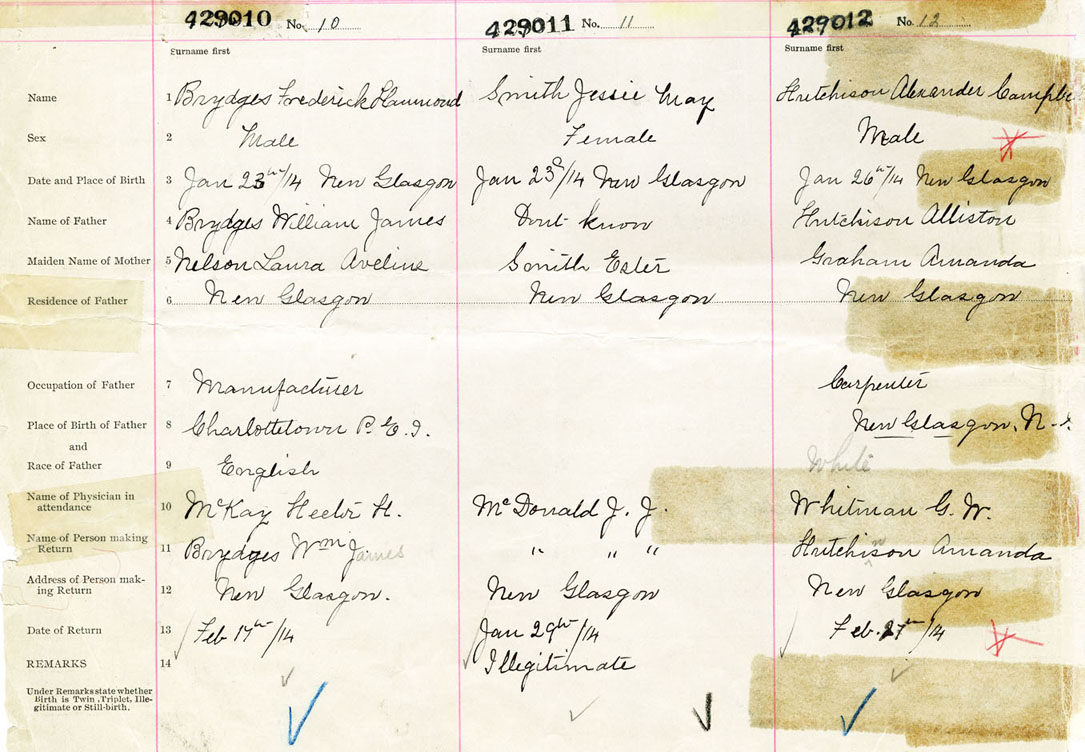 429010 No. 10 429011 No. 11 429012 No. 12
Surname first Surname first Surname first
Name 1 Brydges Frederick Hammond Smith Jessie May Hutchison Alexander Campbe
Sex 2 Male Female Male
Date and Place of Birth 3 Jan 23rd/14 New Glasgow Jan 23rd/14 New Glasgow Jan 26th/14 New Glasgow
Name of Father 4 Brydges William James Dont know Hutchison Alliston
Maiden Name of Mother 5 Nelson Laura Aveline Smith Ester Graham Amanda
Residence of Father 6 New Glasgow New Glasgow New Glasgow
Occupation of Father 7 Manufacturer Carpenter
Place of Birth of Father 8 Charlottetown P.E.I. New Glasgow, N.S.
and
Race of Father 9 English White
Name of Physician in
attendance 10 McKay Hector H. McDonald J. J. Whitman G. W.
Name of Person making
Return 11 Brydges Wm James " " " Hutchison Amanda
Address of Person mak-
ing Return 12 New Glasgow. New Glasgow New Glasgow
Date of Return 13 Feb 17th/14 Jan 29th/14 Feb. 27th/14
REMARKS 14 Illegitimate
Under Remarks state whether
Birth is Twin, Triplet, Ille-
gitimate or Still-birth.